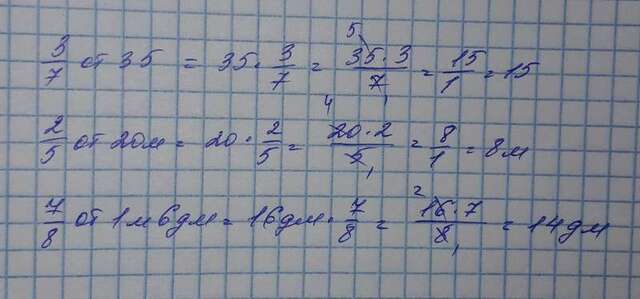 3/7 от 35 = 35 · 3/7 = 35 · 3/7 = 15/1 = 15
2/5 от 20м = 20 · 2/5 = 20 · 2/5 = 8/1 = 8м
7/8 от 1м 6дм = 16дм · 7/8 = 16 · 7/8 = 14дм